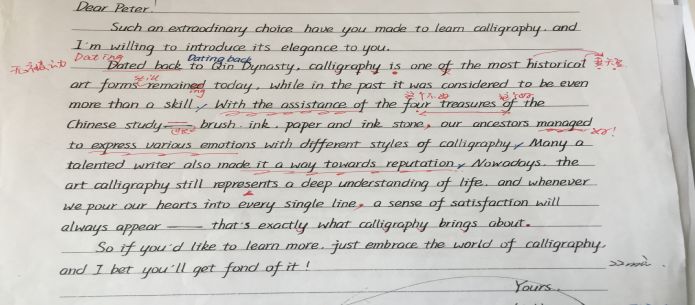 Dear Peter!
Such an extraodinary choice have you made to learn calligraphy, and
I'm willing to introduce its elegance to you.
Dating Dating back
Dated back to Qin Dynasty, calligraphy is one of the most historical
still
art forms remained today, while in the past it was considered to be even
ing
more than a skill. With the assistance of the four treasures of the
Chinese study —— brush, ink, paper and ink stone, our ancestors managed
to express various emotions with different styles of calligraphy. Many a
talented writer also made it a way towards reputation. Nowadays, the
art calligraphy still represents a deep understanding of life, and whenever
we pour our hearts into every single line, a sense of satisfaction will
always appear —— that's exactly what calligraphy brings about.
So if you'd like to learn more, just embrace the world of calligraphy,
and I bet you'll get fond of it!
Yours,